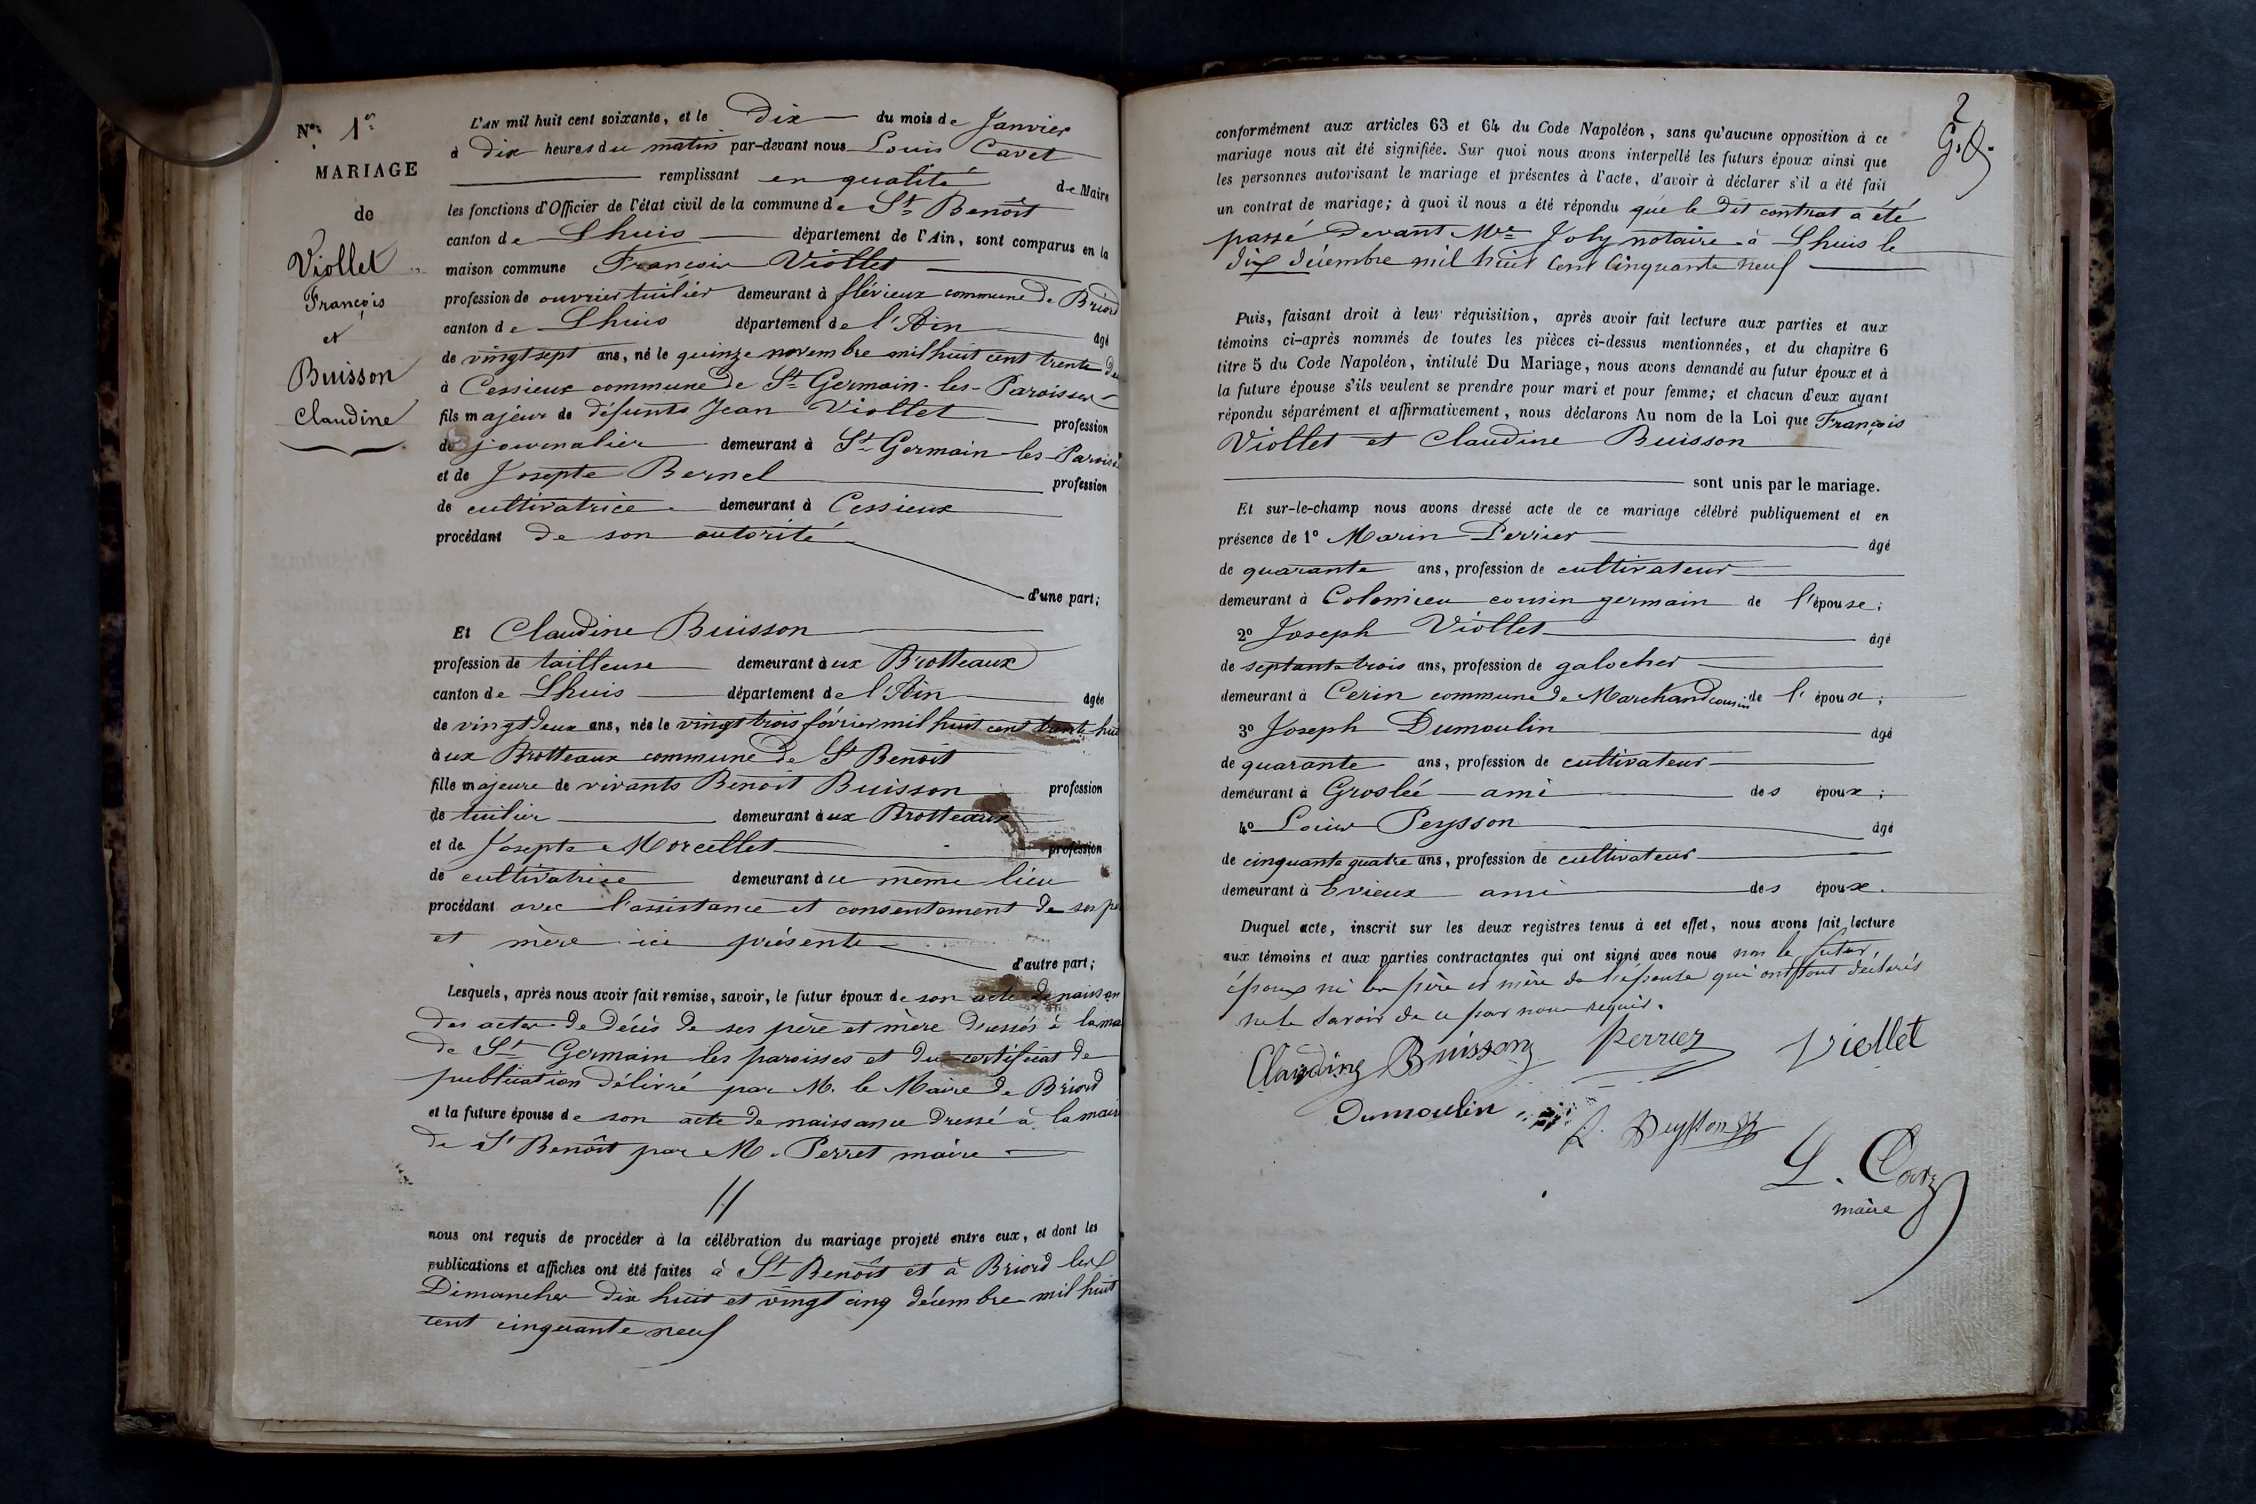 N° 1er
MARIAGE
de
Viollet
François
et
Buisson
Claudine
L'AN mil huit cent soixante, et le Dix du mois de Janvier
à Dix heures du matin par-devant nous Louis Cavet
remplissant en qualité de Maire
les fonctions d'Officier de l'état civil de la commune de St Benoît
canton de Lhuis département de l'Ain, sont comparus en la
maison commune François Viollet
profession de ouvrier tuilier demeurant à flévieux commune de Briord
canton de Lhuis département de l'Ain âgé
de vingt sept ans, né le quinze novembre mil huit cent trente
à Cessieux commune de St Germain-les-Paroisses
fils majeur de défunts Jean Viollet profession
de journalier demeurant à St Germain-les-Parois
et de Josepte Bernel profession
de cultivatrice demeurant à Cessieux
procédant de son autorité
d'une part;
Et Claudine Buisson
profession de tailleuse demeurant aux Brotteaux
canton de Lhuis département de l'Ain âgée
de vingt deux ans, née le vingt trois février mil huit cent trente huit
aux Brotteaux commune de St Benoît
fille majeure de vivants Benoît Buisson profession
de tuilier demeurant aux Brotteaux
et de Josepte Morcellet profession
de cultivatrice demeurant au même lieu
procédant avec l'assistance et consentement de ses
et mère ici présente
d'autre part;
Lesquels, après nous avoir fait remise, savoir, le futur époux de son acte de naissan
des actes de décès de ses père et mère dressés à la
de St Germain les paroisses et du certificat de
publication délivré par M. le Maire de Briord
et la future épouse de son acte de naissance dressé à la mairi
de St Benoît par M. Perret maire
nous ont requis de procéder à la célébration du mariage projeté entre eux, et dont les
publications et affiches ont été faites à St Benoît et à Briord les
Dimanches dix huit et vingt cinq décembre mil huit
cent cinquante neuf
2
conformément aux articles 63 et 64 du Code Napoléon, sans qu'aucune opposition à ce
mariage nous ait été signifiée. Sur quoi nous avons interpellé les futurs époux ainsi que
les personnes autorisant le mariage et présentes à l'acte, d'avoir à déclarer s'il a été fait
un contrat de mariage; à quoi il nous a été répondu que le dit contrat a été
passé devant Me Joly notaire à Lhuis le
dix décembre mil huit cent cinquante neuf
Puis, faisant droit à leur réquisition, après avoir fait lecture aux parties et aux
témoins ci-après nommés de toutes les pièces ci-dessus mentionnées, et du chapitre 6
titre 5 du Code Napoléon, intitulé Du Mariage, nous avons demandé au futur époux et à
la future épouse s'ils veulent se prendre pour mari et pour femme; et chacun d'eux ayant
répondu séparément et affirmativement, nous déclarons Au nom de la Loi que François
Viollet et Claudine Buisson
sont unis par le mariage.
Et sur-le-champ nous avons dressé acte de ce mariage célébré publiquement et en
présence de 1° Marin Perrier âgé
de quarante ans, profession de cultivateur
demeurant à Colomieu cousin germain de l'épouse;
2° Joseph Viollet âgé
de septante trois ans, profession de galocher
demeurant à Cerin commune de Marchand cousin de l'époux;
3° Joseph Dumoulin âgé
de quarante ans, profession de cultivateur
demeurant à Groslée ami des époux;
4° Louis Peysson âgé
de cinquante quatre ans, profession de cultivateur
demeurant à Evieux ami des époux.
Duquel acte, inscrit sur les deux registres tenus à cet effet, nous avons fait lecture
aux témoins et aux parties contractantes qui ont signé avec nous non le futur
époux ni les père et mère de l'épouse qui ont tout déclarés
ne le savoir de ce par nous requis.
Claudine Buisson Perrier Viollet
Dumoulin L. Peysson
L. Cavet
maire